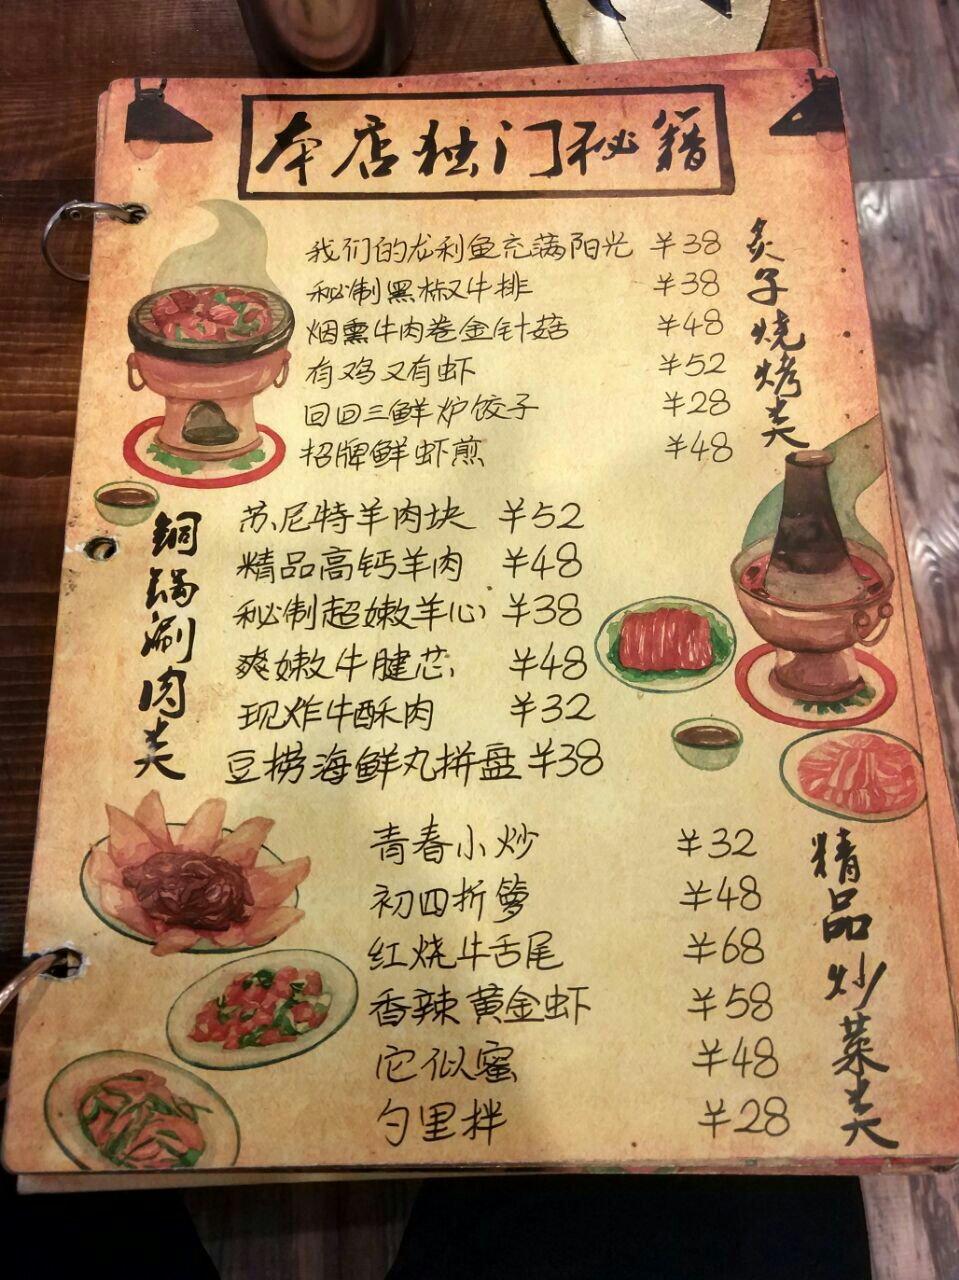 本店独门秘籍
炙子烧烤类
我们的龙利鱼充满阳光 ¥38
秘制黑椒牛排 ¥38
烟熏牛肉卷金针菇 ¥48
有鸡又有虾 ¥52
回回三鲜炉饺子 ¥28
招牌鲜虾煎 ¥48
铜锅涮肉类
苏尼特羊肉块 ¥52
精品高钙羊肉 ¥48
秘制超嫩羊心 ¥38
爽嫩牛腱芯 ¥48
现炸牛酥肉 ¥32
豆捞海鲜丸拼盘 ¥38
精品炒菜类
青春小炒 ¥32
初四折箩 ¥48
红烧牛舌尾 ¥68
香辣黄金虾 ¥58
它似蜜 ¥48
勺里拌 ¥28